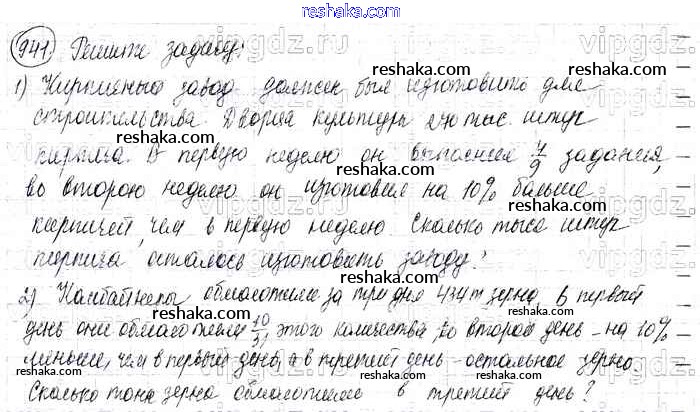 reshaka.com
941 Решите задачу:
1) Кирпичный завод должен был изготовить для
строительства Дворца культуры 270 тыс. штук
кирпича. В первую неделю он выполнил 4/9 задания,
во вторую неделю он изготовил на 10% больше
кирпичей, чем в первую неделю. Сколько тысяч штук
кирпича осталось изготовить заводу?
2) Комбайнеры обмолотили за три дня 434 т зерна. В первый
день они обмолотили 10/31 этого количества, во второй день – на 10%
меньше, чем в первый день, а в третий день – остальное зерно.
Сколько тонн зерна обмолотили в третий день?
reshaka.com